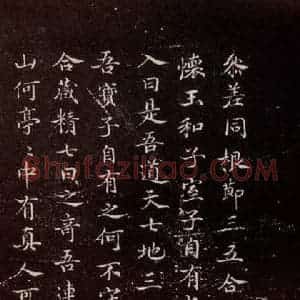 參差同根節三五合
懷玉和子室子自有
入日是吾道天七地三
吾寶子自有之何不守
合藏精七日之奇吾連
山何亭〻中有真人可
Shufaziliao.com